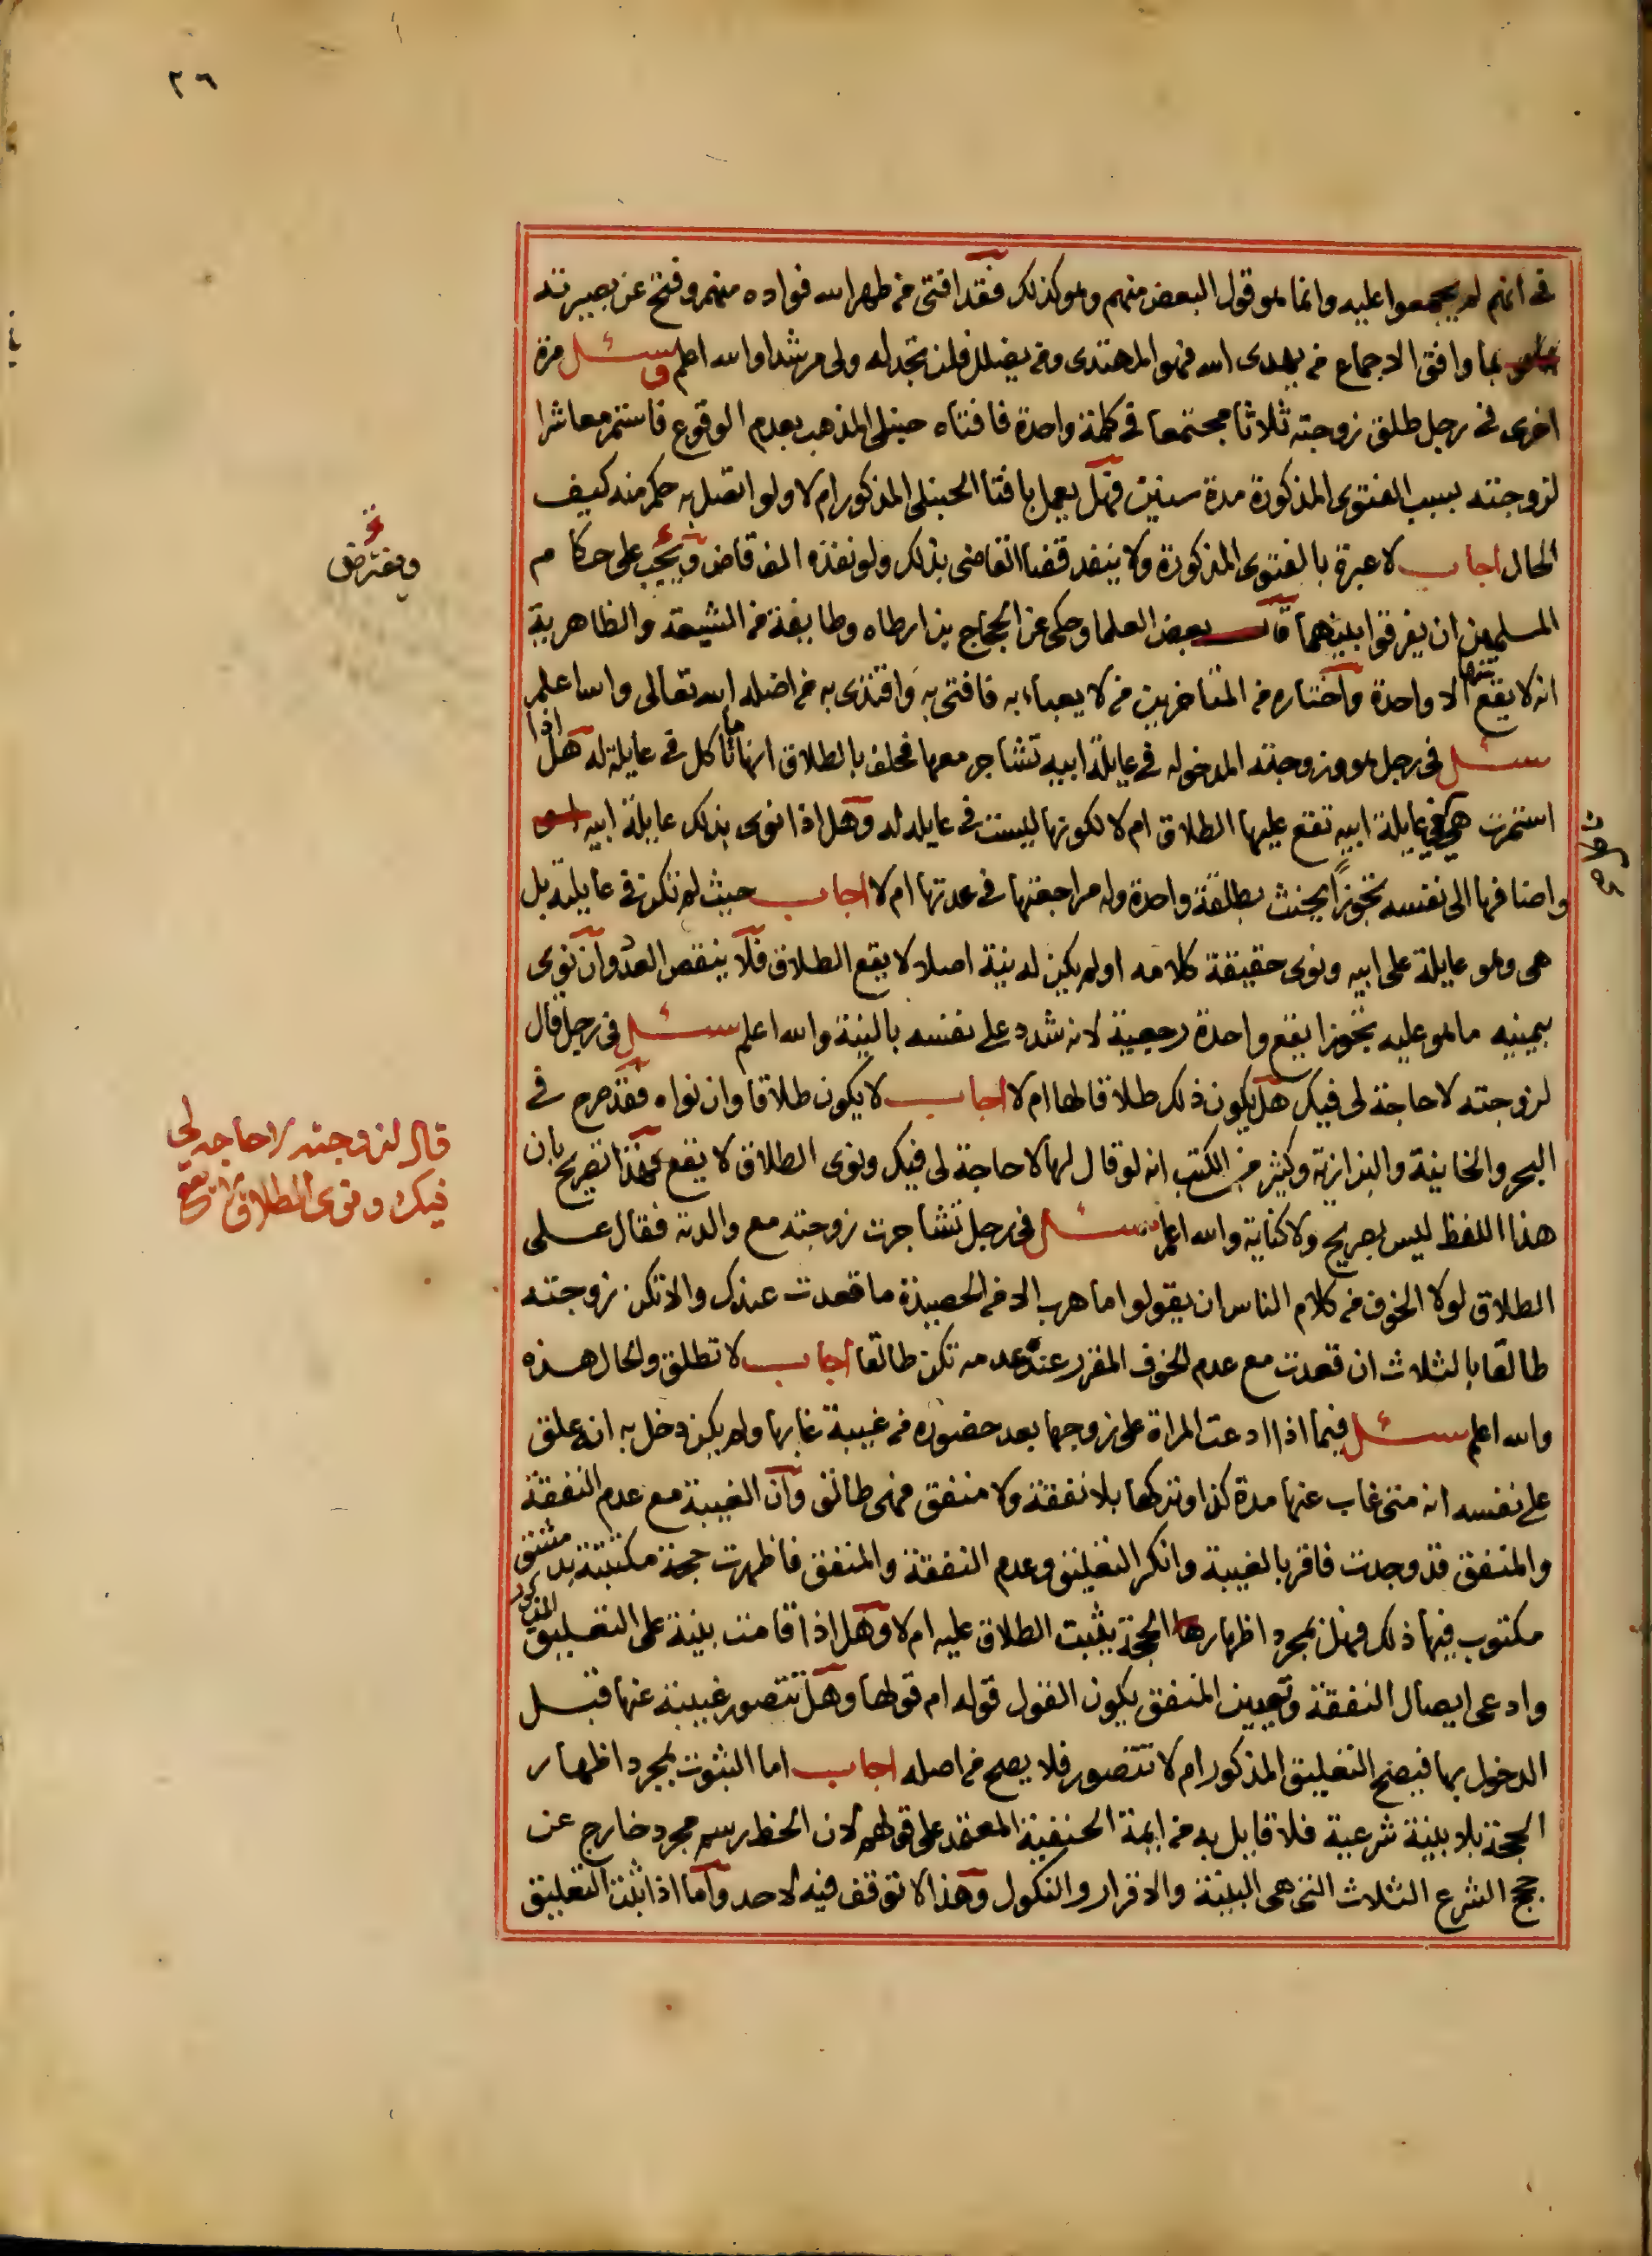 ٢٦
في انهم لم يجمعوا عليه وانما هو قول البعض منهم وهو كذلك فقد افتى من طهر الله فواده منهم وفتح عن بصيرته
بما وافق الاجماع من يهدى الله فهو المهتدى ومن يضلل فلن تجد له ولى مرشدا والله اعلم وسئل مرة
اخرى في رجل طلق زوجته ثلاثا مجتمعا في كلمة واحدة فافتاه حنبلى المذهب بعدم الوقوع فاستمر معاشرا
لزوجته بسبب الفتوى المذكورة مدة سنين فهل يعمل بافتا الحنبلى المذكور ام لا ولو اتصل به حكم منه كيف
الحال اجاب لا عبرة بالفتوى المذكورة ولا ينفد قضا القاضى بذلك ولو نفذه الف قاض ويجب على حكام م
ويفترض
المسلمين ان يفرقوا بينهما قال بعض العلما وحكى عن الحجاج بن ارطاه وطايفة من الشيعة والظاهرية
انه لا يقع منها الا واحدة واختاره من المتاخرين من لا يعباء به فافتى به واقتدى به من اضله الله تعالى والله اعلم
سئل في رجل هو وزوجته المدخوله في عايلة ابيه تشاجر معها فحلف بالطلاق انها ما تاكل في عايلة له هل اذا
استمرت هي في عايلة ابيه تقع عليها الطلاق ام لا لكونها ليست في عايله له وهل اذا نوى بذلك عايلة ابيه
واضافها الى نفسه تجوزا يحنث بطلقة واحدة وله مراجعتها في عدتها ام لا اجاب حيث لم تكن في عايلته بل
هي وهو عايلة على ابيه ونوى حقيقة كلامه او لم يكن له نية اصلا لا يقع الطلاق فلا ينقص العدد وان نوى
بيمينيه ما هو عليه تجوزا يقع واحدة رجعية لانه شدد على نفسه بالنية والله اعلم سئل في رجل قال
لزوجته لا حاجة لى فيك هل يكون ذلك طلاقا لها ام لا اجاب لا يكون طلاقا وان نواه فقد صرح في
قال لزوجته لا حاجه لي
فيك ونوى الطلاق لا يقع
البحر والخانية والبزازية وكثير من الكتب انه لو قال لها لا حاجة لى فيك ونوى الطلاق لا يقع فهذا تصريح بان
هذا اللفظ ليس بصريح ولا كناية والله اعلم سئل في رجل تشاجرت زوجته مع والدته فقال على
الطلاق لولا الخوف من كلام الناس ان يقولو اما هرب الا من الحصيدة ما قعدت عندك والا تكن زوجته
طالقا بالثلاث ان قعدت مع عدم الخوف المقرر عنده عدمه تكن طالقا اجاب لا تطلق والحال هذه
والله اعلم سئل فيما اذا ادعت المراة على زوجها بعد حضوره من غيبة غابها ولم يكن دخل به انه علق
على نفسه انه متى غاب عنها مدة كذا وتركها بلا نفقة ولا منفق فهى طالق وان الغيبة مع عدم النفقة
والمنفق قد وجدت فاقر بالغيبة وانكر التعليق وعدم النفقة والمنفق فاظهرت حجة مكتتبة بدمشق
مكتوب فيها ذلك فهل بمجرد اظهارها الحجة يثبت الطلاق عليه ام لا وهل اذا قامت بينة على التعليق المذكور
وادعى ايصال النفقة وتعيين المنفق يكون القول قوله ام قولها وهل تتصور غيبته عنها قبل
الدخول بها فيصح التعليق المذكور ام لا تتصور فلا يصح من اصله اجاب اما الثبوت بمجرد اظهار
الحجة بلا بينة شرعية فلا قايل به من ايمة الحنفية المعتمد على قولهم لان الخط رسم مجرد خارج عن
حجج الشرع الثلاث التي هى البينة والاقرار والنكول وهذا لا توقف فيه لاحد واما اذا ثبت التعليق